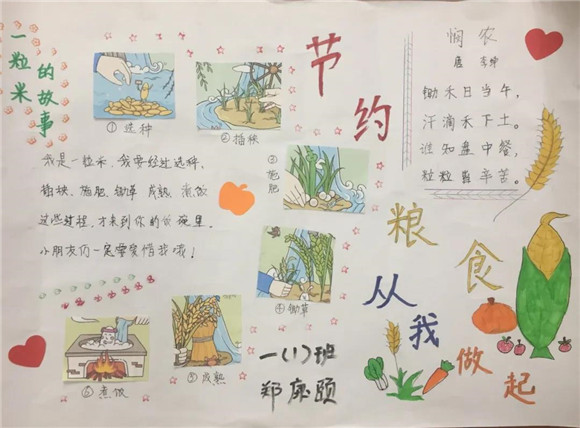 一粒米
的故事
①选种
②插秧
③施肥
④锄草
⑤成熟
⑥煮饭
我是一粒米，我要经过选种、
插秧、施肥、锄草、成熟、煮饭
这些过程，才来到你的饭碗里。
小朋友们一定要爱惜我哦！
节约
粮食
从我做起
悯农
唐 李绅
锄禾日当午，
汗滴禾下土。
谁知盘中餐，
粒粒皆辛苦。
一(1)班
郑